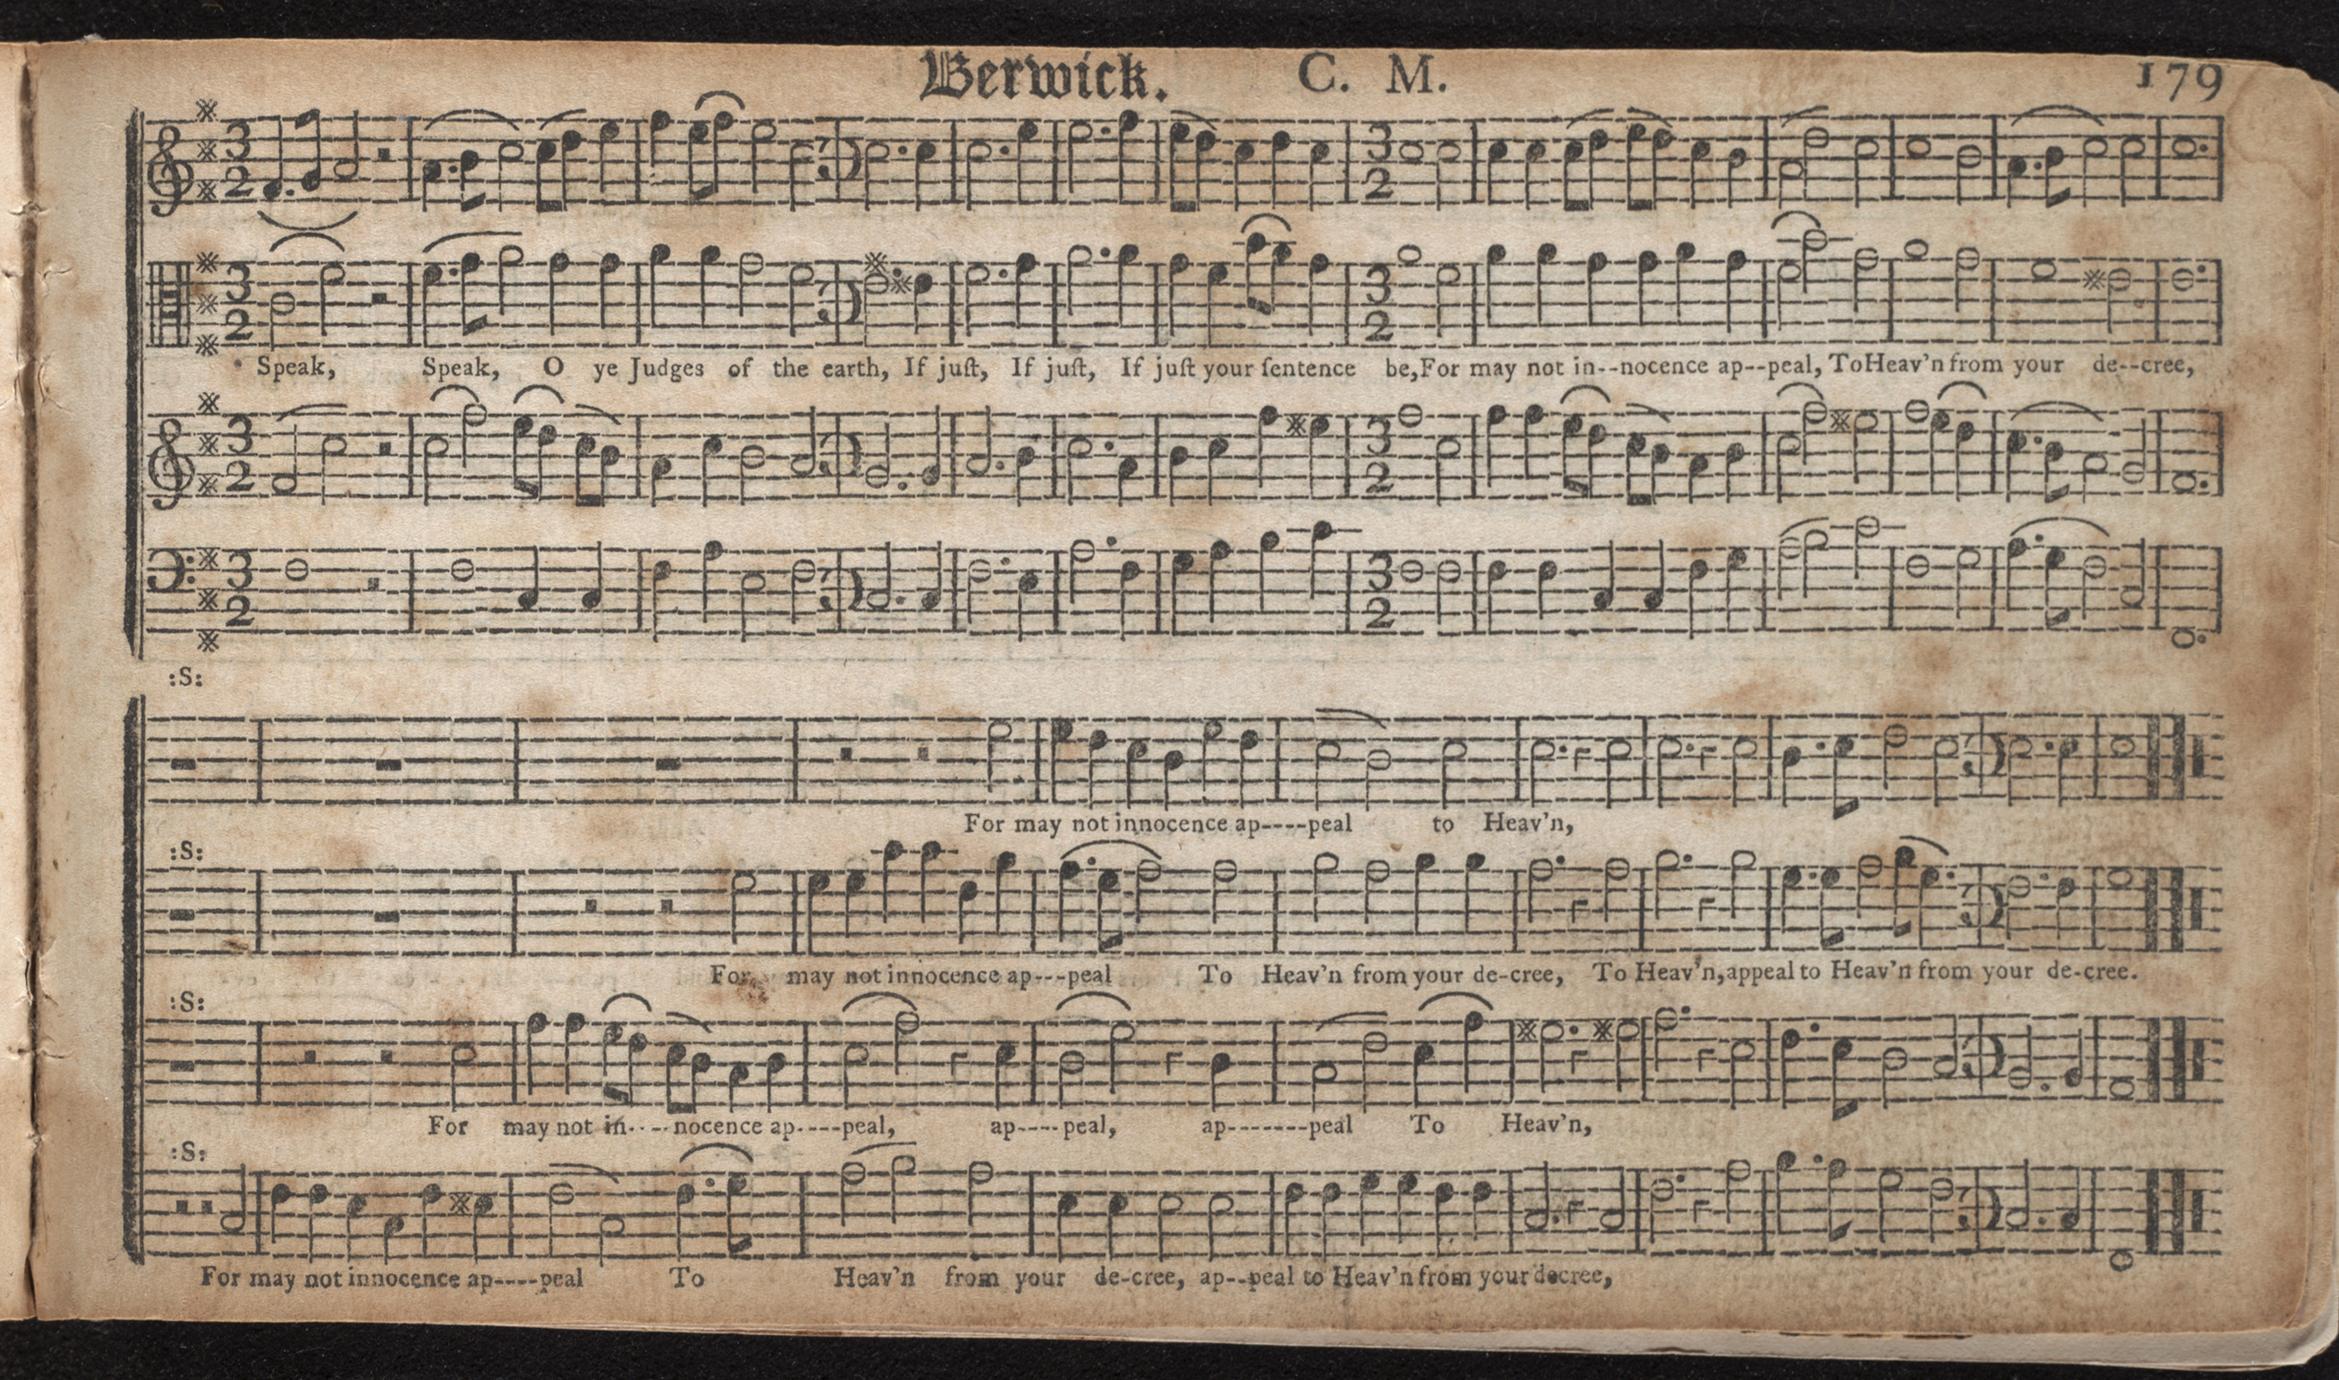 Berwick. C. M. 179
3 2 3 2
3 2 3 2
Speak, Speak, O ye Judges of the earth, If juſt, If juſt, If juſt your ſentence be, For may not in--nocence ap--peal, To Heav'n from your de--cree,
3 2 3 2
3 2 3 2
:S:
For may not innocence ap----peal to Heav'n,
:S:
For may not innocence ap---peal To Heav'n from your de-cree, To Heav'n, appeal to Heav'n from your de-cree.
:S:
For may not in----nocence ap----peal, ap----peal, ap-------peal To Heav'n,
:S:
For may not innocence ap----peal To Heav'n from your de-cree, ap--peal to Heav'n from your decree,